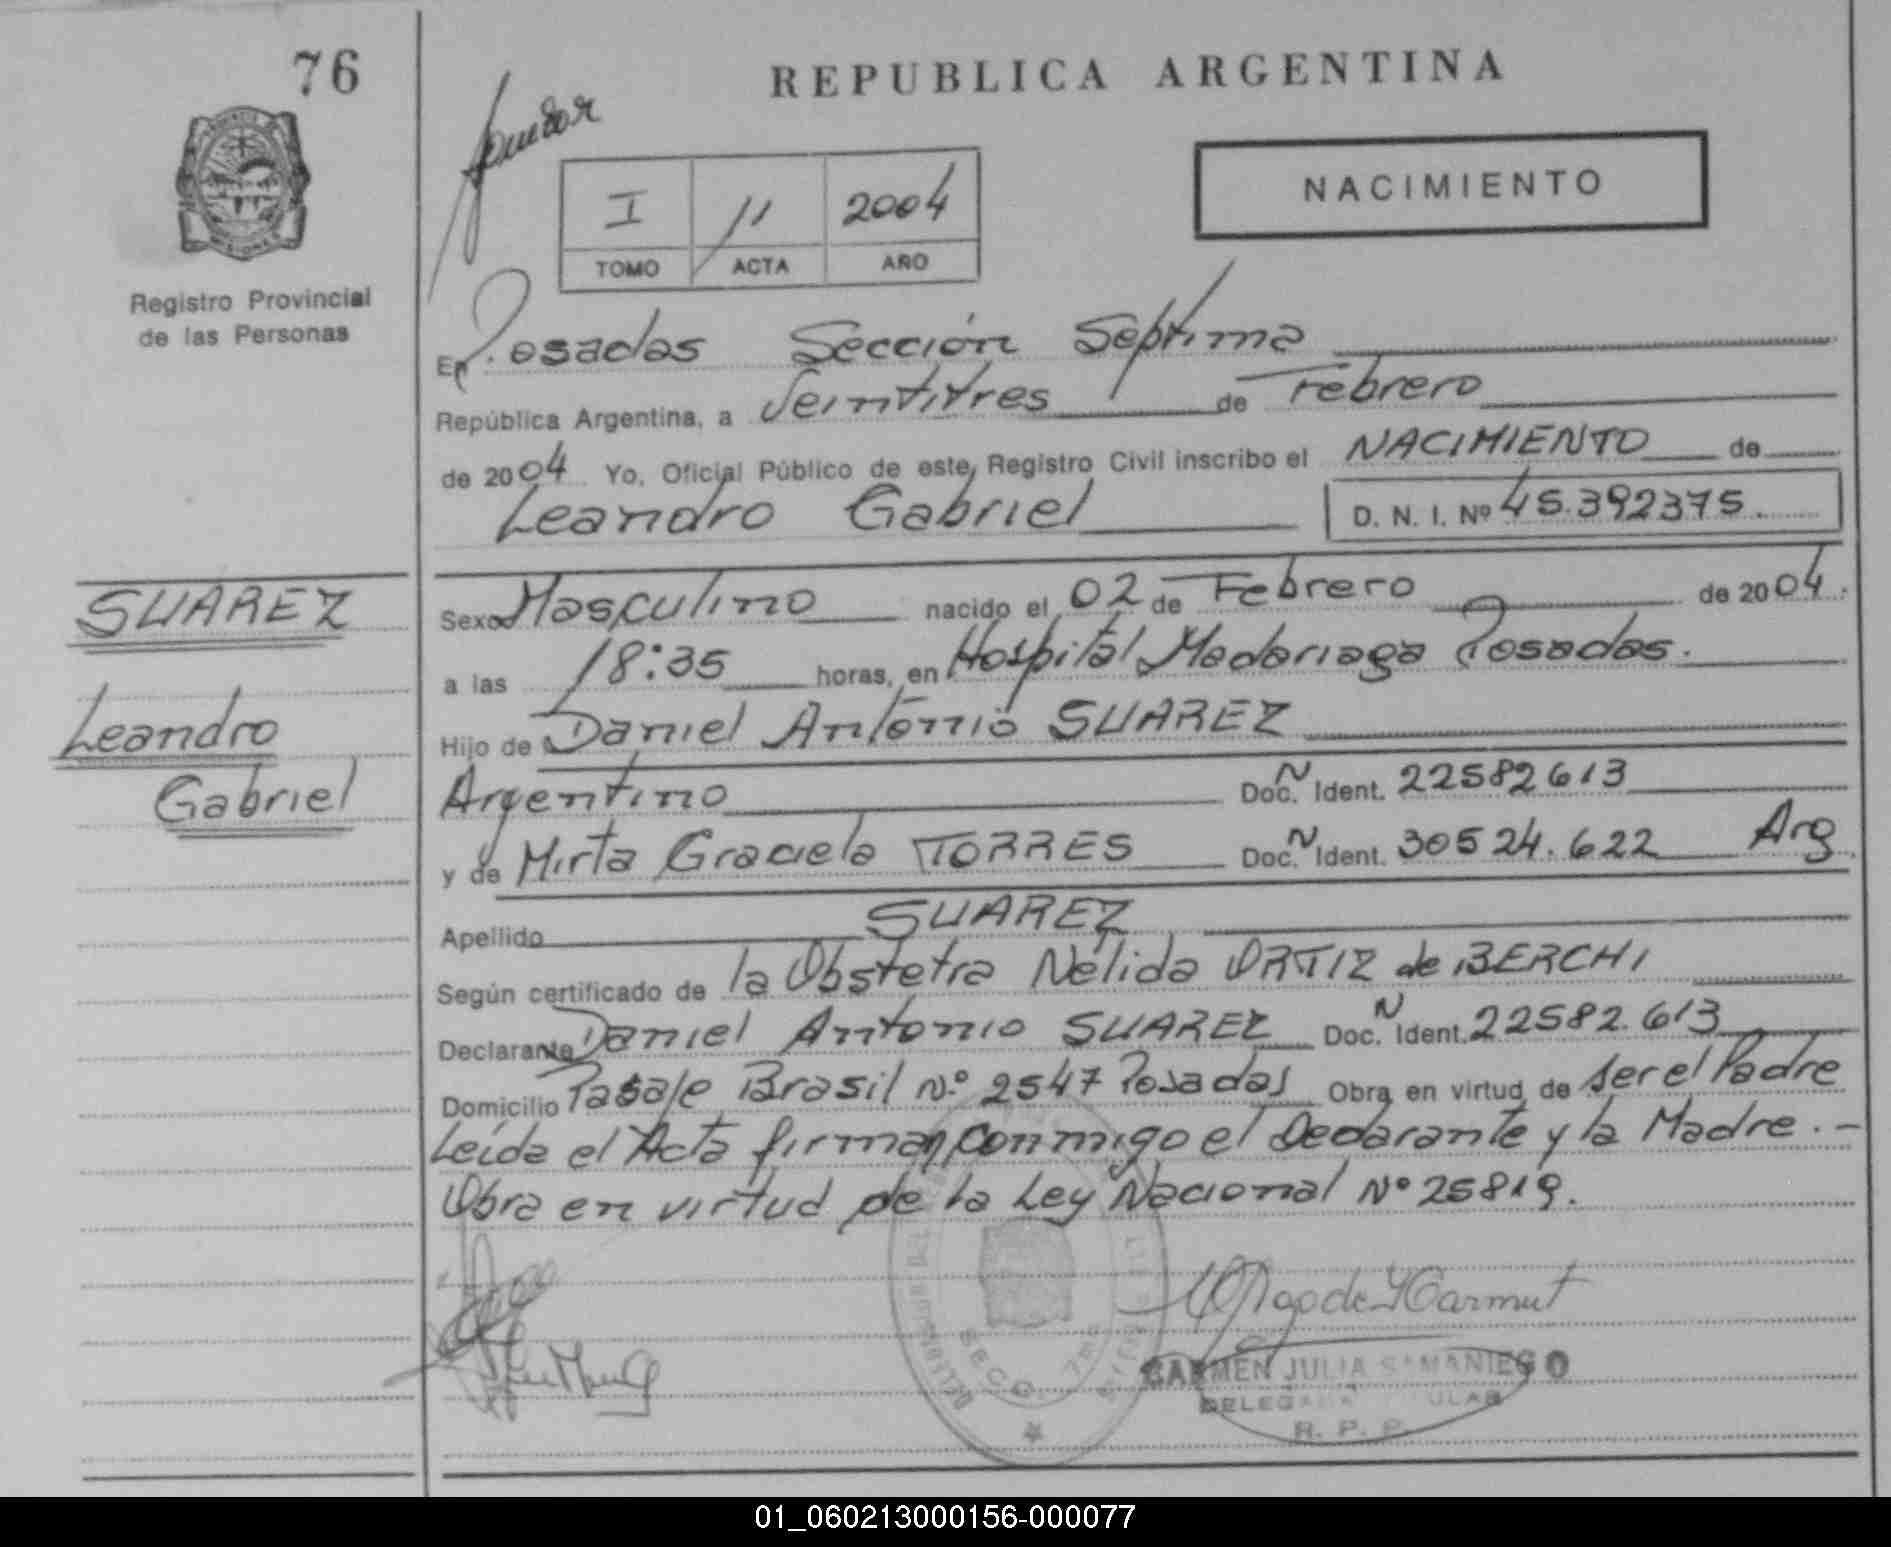 76
REPUBLICA ARGENTINA
I 11 2004
TOMO ACTA AÑO
NACIMIENTO
Registro Provincial
de las Personas
En Posadas Sección Septima
República Argentina, a Veintitres de Febrero
de 2004 Yo, Oficial Público de este Registro Civil inscribo el NACIMIENTO de
Leandro Gabriel D. N. I. Nº 45.392375.
SUAREZ
Leandro
Gabriel
Sexo Masculino nacido el 02 de Febrero de 2004.
a las 18:35 horas, en Hospital Madariaga Posadas.
Hijo de Daniel Antonio SUAREZ
Argentino Doc. N Ident. 22582613
y de Mirta Graciela TORRES Doc. N Ident. 30524.622 Arg
Apellido SUAREZ
Según certificado de la Obstetra Nélida ORTIZ de BERCHI
Declarante Daniel Antonio SUAREZ Doc. N Ident. 22582.613
Domicilio Pasaje Brasil Nº 2547 Posadas Obra en virtud de ser el Padre
Leída el Acta firman conmigo el Declarante y la Madre.-
Obra en virtud de la Ley Nacional Nº 25819.
SECC. 7ma
CARMEN JULIA SAMANIEGO
R. P. P.
01_060213000156-000077